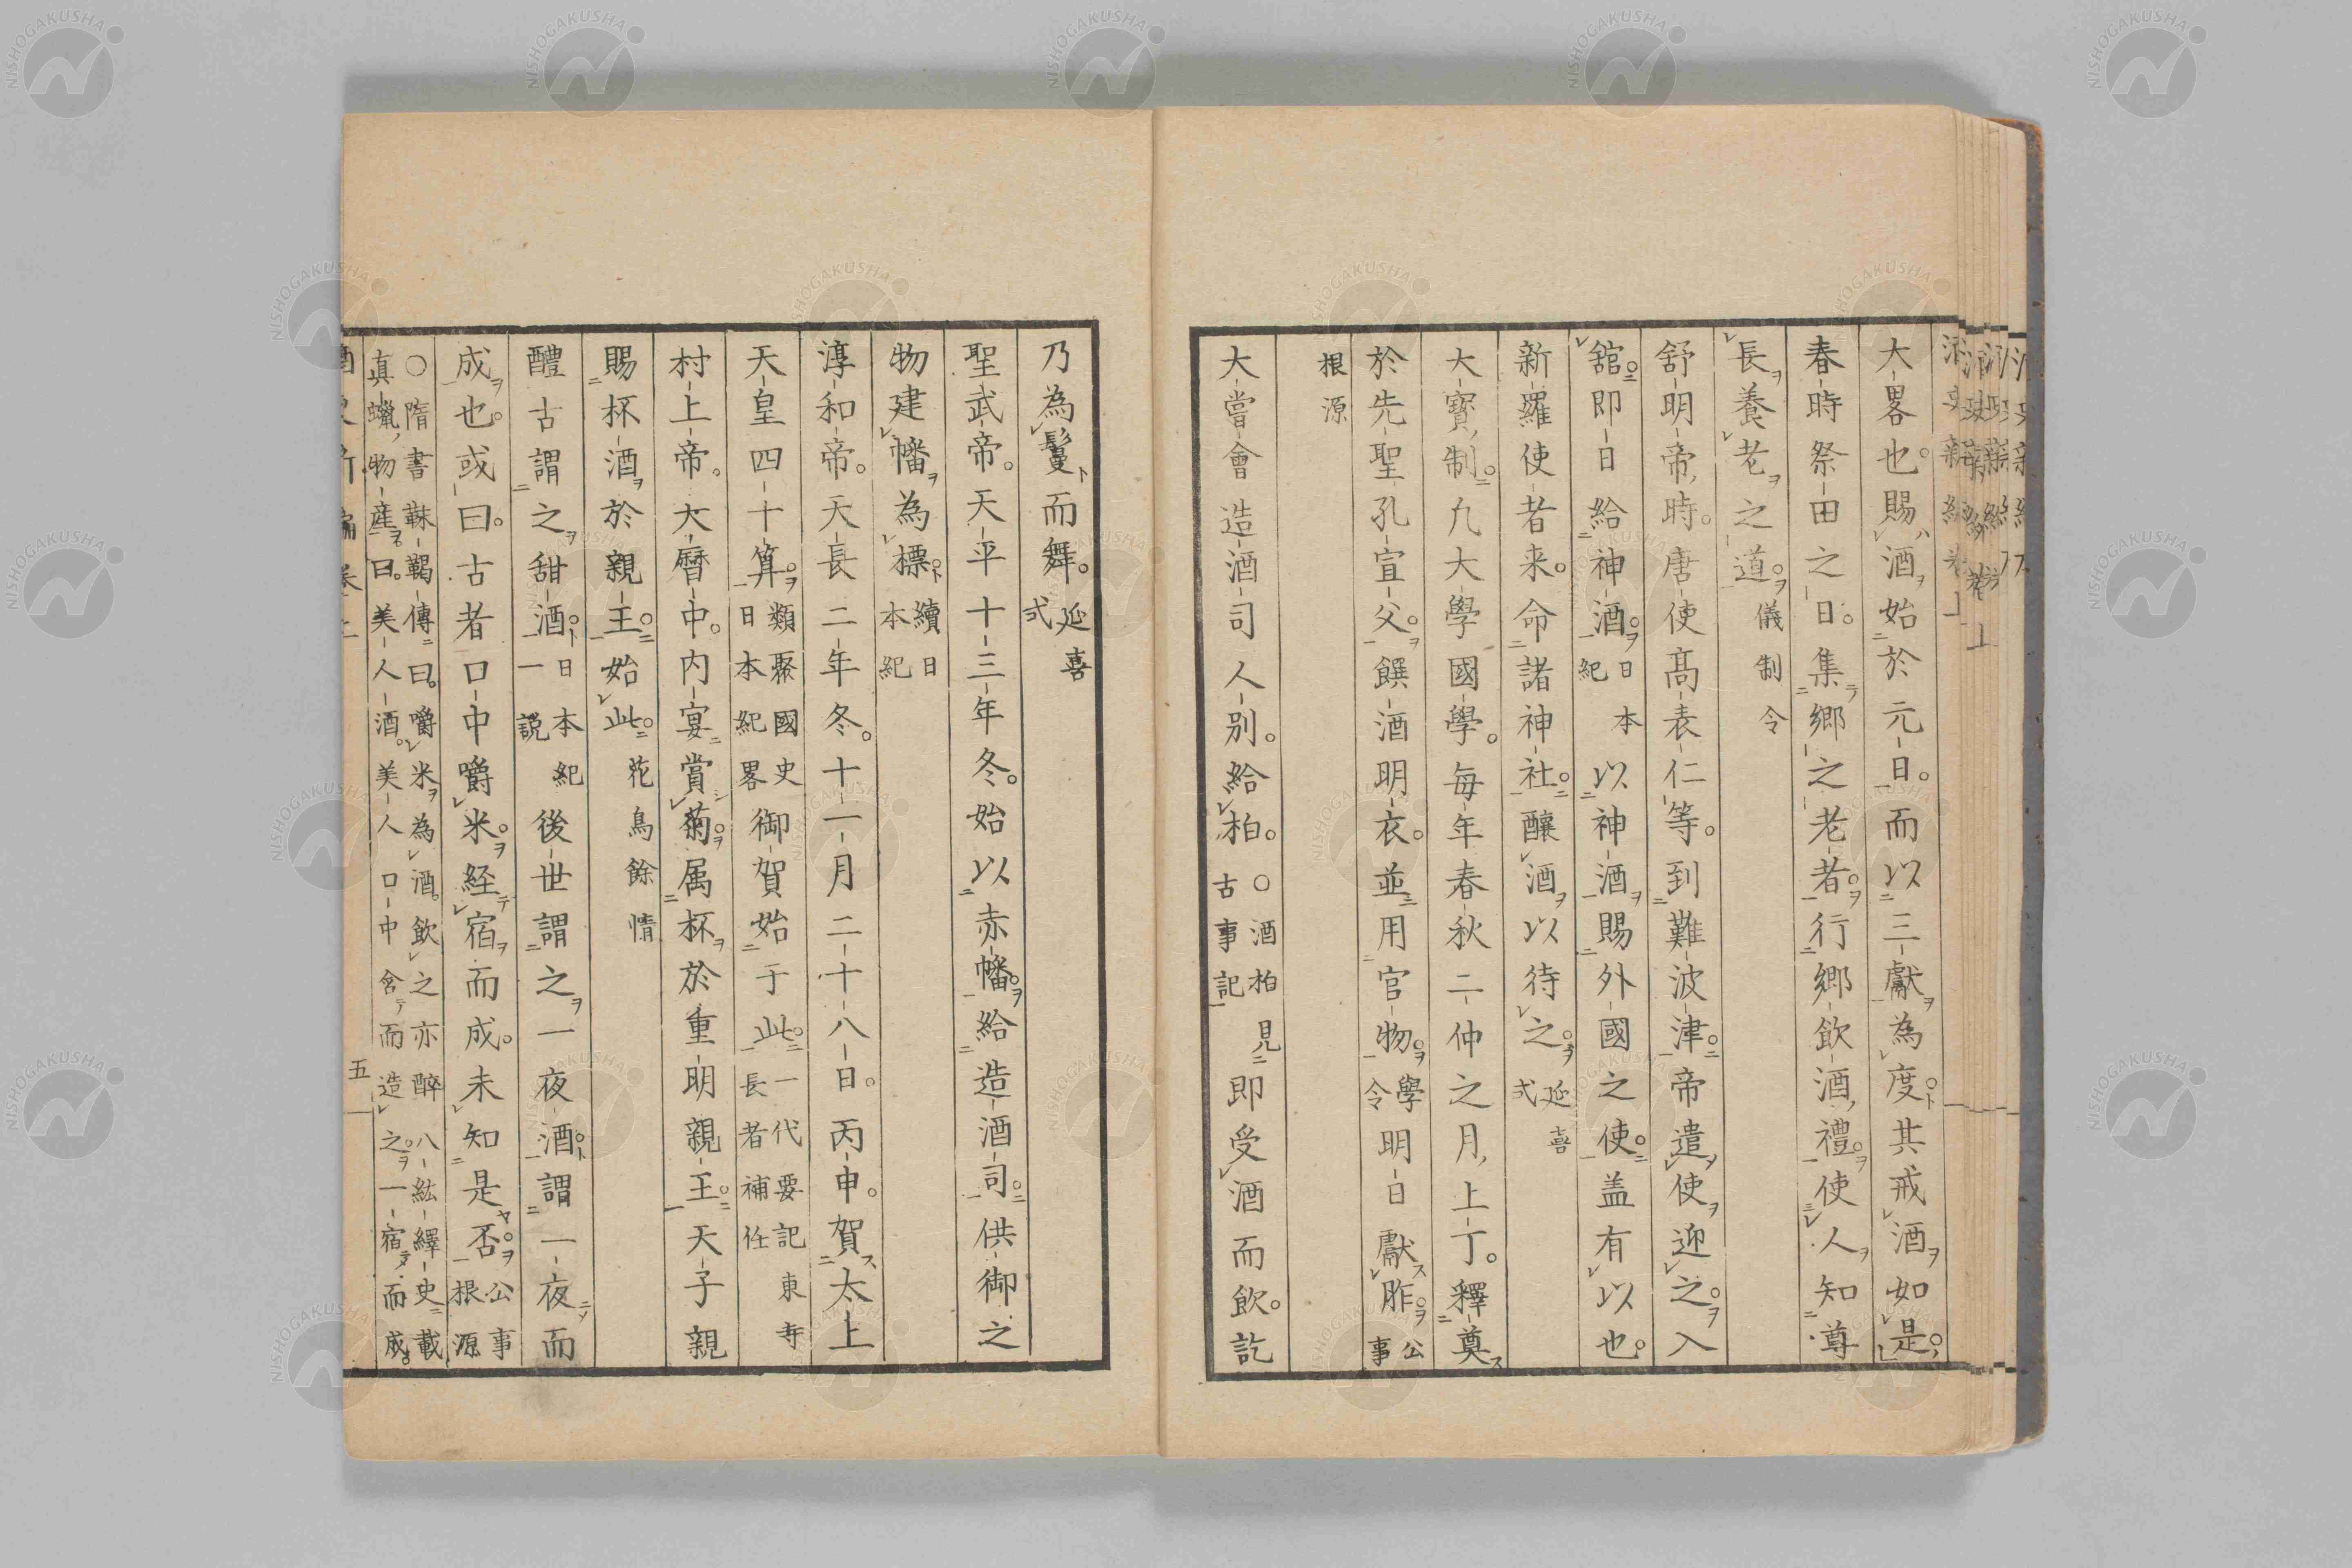 大畧也賜酒始於元日而以三獻為度其戒酒如是
春時祭田之日集郷之老者行郷飲酒禮使人知尊
長養老之道儀制令
舒明帝時唐使高表仁等到難波津帝遣使迎之入
舘即日給神酒日本紀以神酒賜外國之使盖有以也
新羅使者来命諸神社釀酒以待之延喜式
大寳制凢大學國學毎年春秋二仲之月上丁釋奠
於先聖孔宣父饌酒明衣並用官物學令明日獻胙公事
根源
大嘗會造酒司人別給柏○酒柏見古事記即受酒而飲訖
乃為鬘而舞延喜式
聖武帝天平十三年冬始以赤幡給造酒司供御之
物建幡為標續日本紀
淳和帝天長二年冬十一月二十八日丙申賀太上
天皇四十算類聚國史日本紀畧御賀始于此一代要記東寺長者補任
村上帝大暦中内宴賞菊属杯於重明親王天子親
賜杯酒於親王始此花鳥餘情
醴古謂之甜酒日本紀一説後世謂之一夜酒謂一夜而
成也或曰古者口中嚼米経宿而成未知是否公事根源
○隋書靺鞨傳曰嚼米為酒飲之亦醉八紘繹史載
真蠟物産曰美人酒美人口中含而造之一宿而成
五
NISHOGAKUSHA